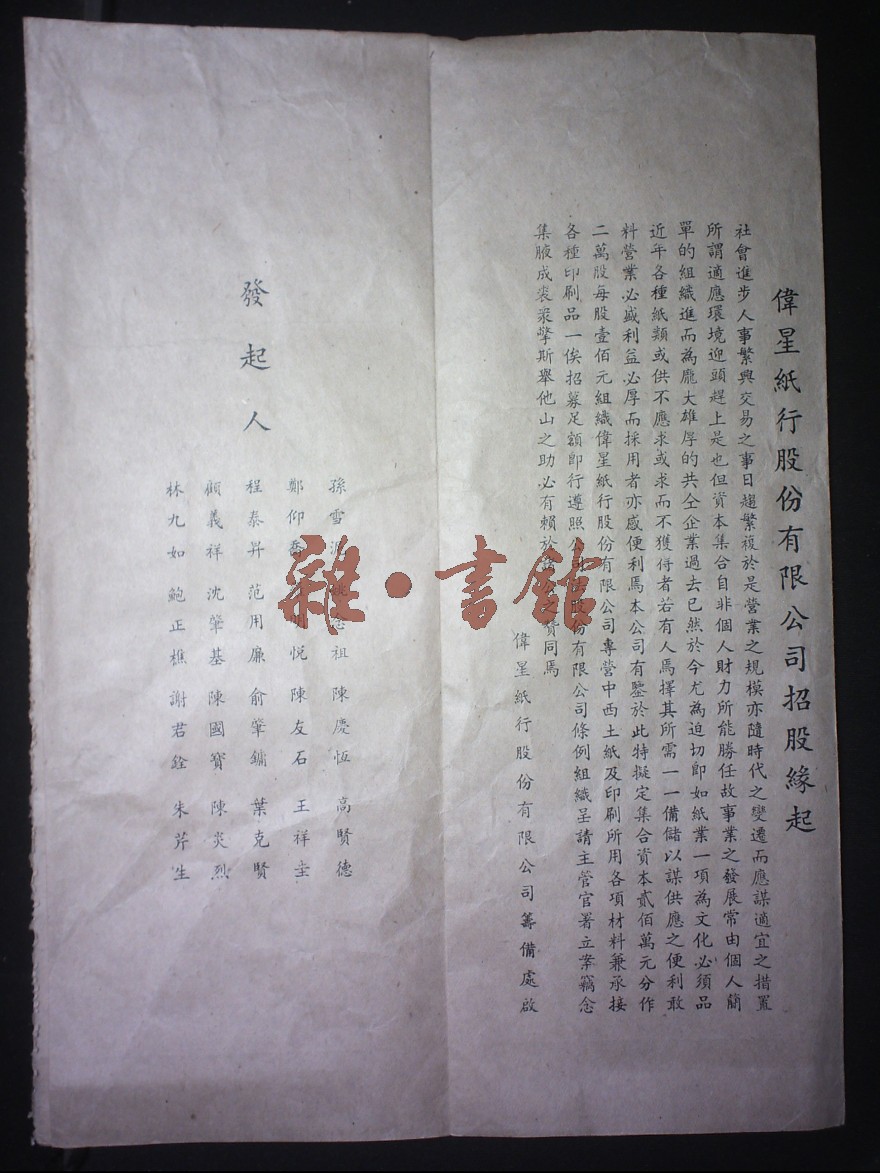 偉星紙行股份有限公司招股緣起
社會進步人事繁興交易之事日趨繁複於是營業之規模亦隨時代之變遷而應謀適宜之措置
所謂適應環境迎頭趕上是也但資本集合自非個人財力所能勝任故事業之發展常由個人簡
單的組織進而為龐大雄厚的共仝企業過去已然於今尤為迫切即如紙業一項為文化必須品
近年各種紙類或供不應求或求而不獲得者若有人焉擇其所需一一備儲以謀供應之便利敢
料營業必盛利益必厚而採用者亦感便利焉本公司有鑒於此特擬定集合資本貳佰萬元分作
二萬股每股壹佰元組織偉星紙行股份有限公司專營中西土紙及印刷所用各項材料兼承接
各種印刷品一俟招募足額即行遵照公司法股份有限公司條例組織呈請主管官署立案竊念
集腋成裘眾擎斯舉他山之助必有賴於之贊同焉
偉星紙行股份有限公司籌備處啟
發起人
孫雪 念祖 陳慶恆 高賢德
鄭仰喬 悅 陳友石 王祥
程泰昇 范用廉 俞肇鏞 葉克賢
顧義祥 沈肇基 陳國寶 陳炎烈
林九如 鮑正樵 謝君銓 朱芹生
雜·書館